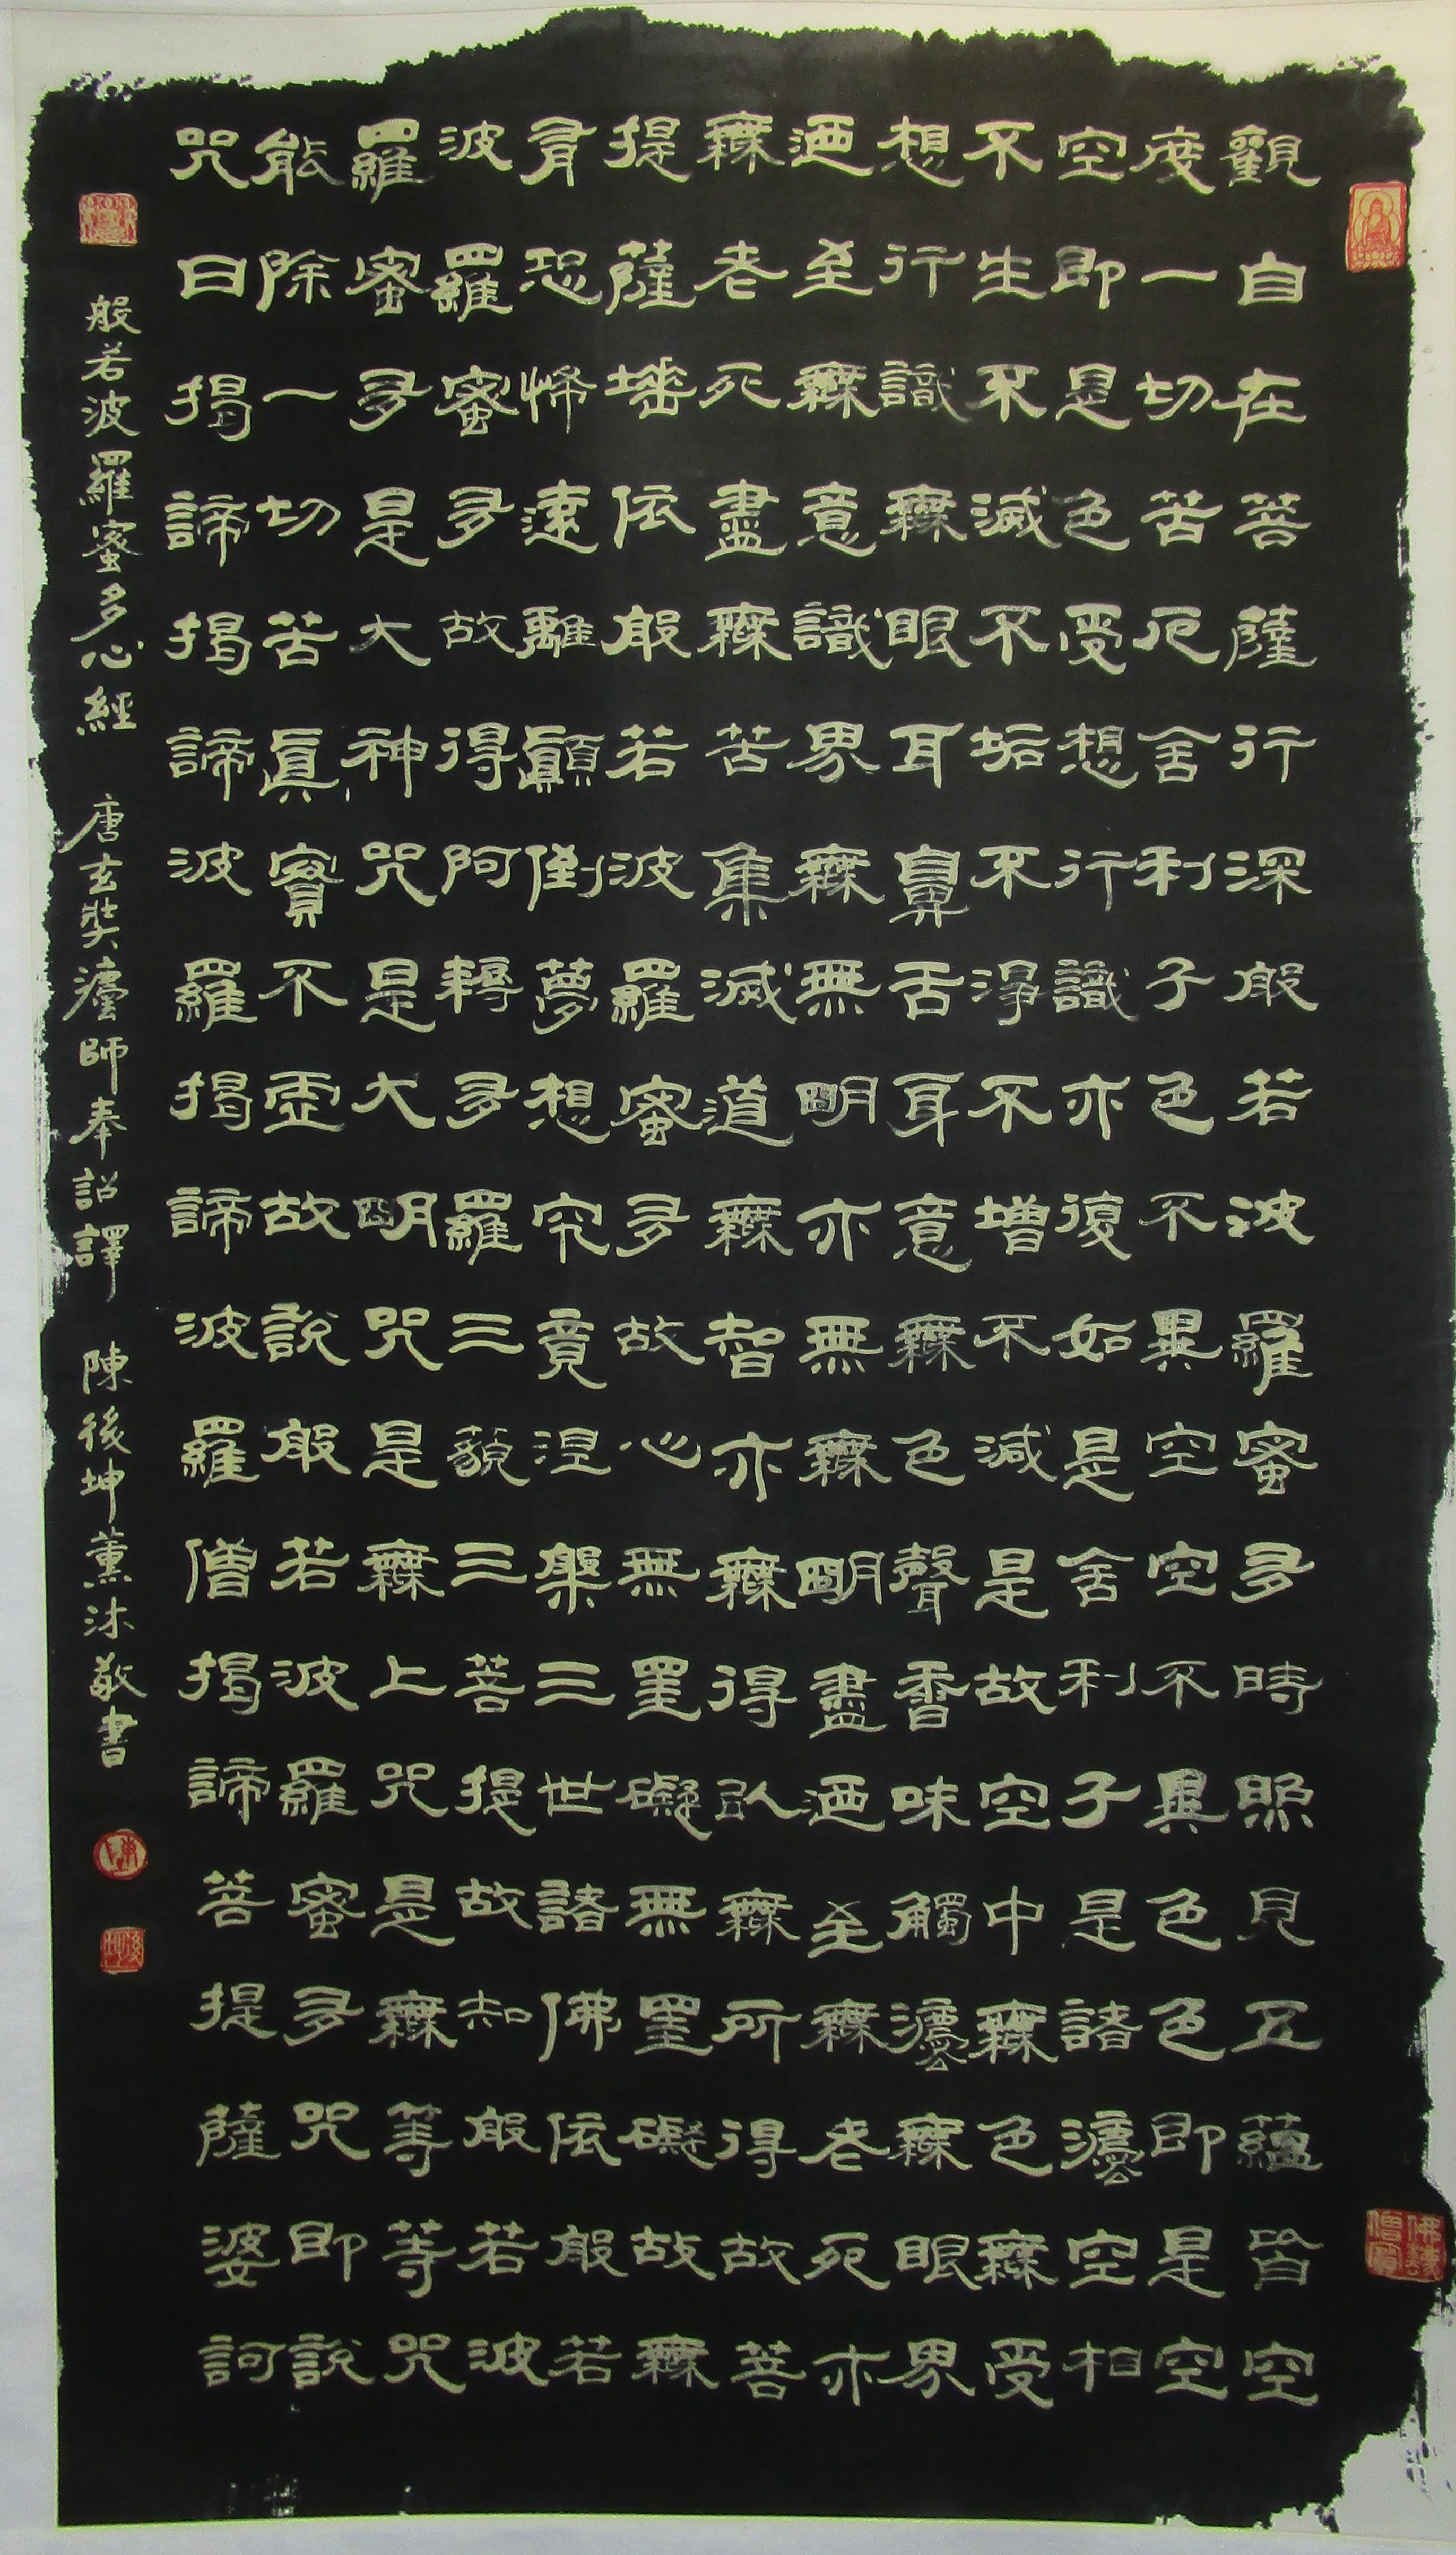 觀自在菩薩行深般若波羅蜜多時照見五蘊皆空
度一切苦厄舍利子色不異空空不異色色即是空
空即是色受想行識亦復如是舍利子是諸灋空相
不生不滅不垢不淨不增不減是故空中無色無受
想行識無眼耳鼻舌身意無色聲香味觸灋無眼界
迺至無意識界無無明亦無無明盡迺至無老死亦
無老死盡無苦集滅道無智亦無得以無所得故菩
提薩埵依般若波羅蜜多故心無罣礙無罣礙故無
有恐怖遠離顛倒夢想究竟涅槃三世諸佛依般若
波羅蜜多故得阿耨多羅三藐三菩提故知般若波
羅蜜多是大神咒是大明咒是無上咒是無等等咒
能除一切苦眞實不虛故說般若波羅蜜多咒即說
咒曰揭諦揭諦波羅揭諦波羅僧揭諦菩提薩婆訶
般若波羅蜜多心經 唐玄奘灋師奉詔譯 陳後坤薰沐敬書